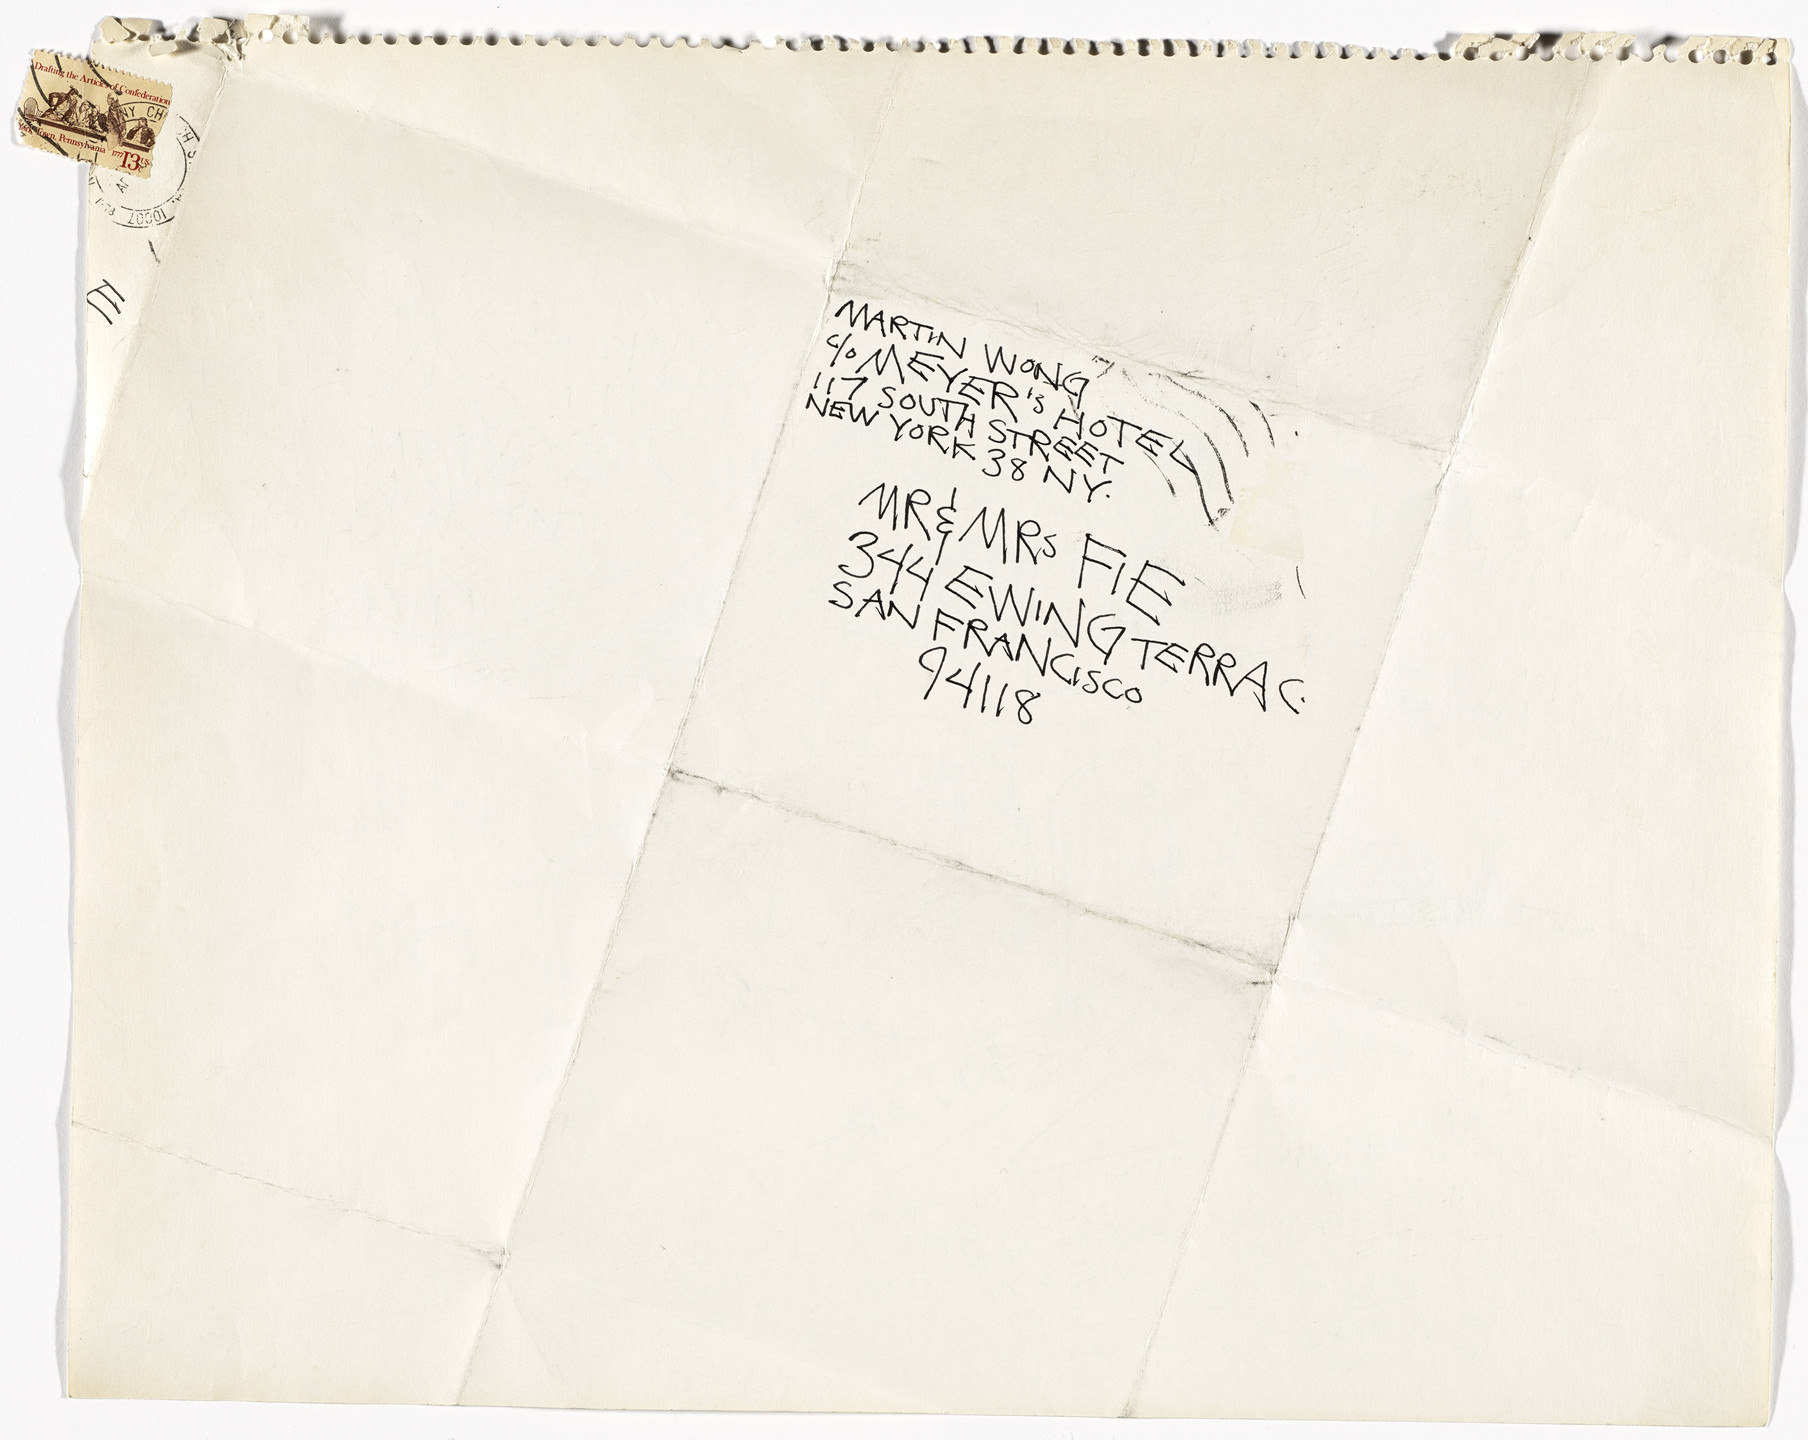 Drafting the Articles of Confederation
York Town, Pennsylvania 1777 13c
NY CH
10007
E
MARTIN WONG
c/o MEYER'S HOTEL
117 SOUTH STREET
NEW YORK 38 NY.
MR & MRS FIE
344 EWING TERRAC.
SAN FRANCISCO
94118